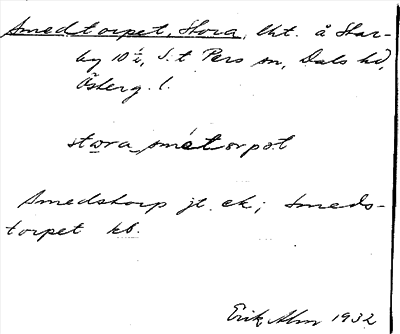 Smedtorpet, Stora, lht. å Star-
by 10 ½, S:t Pers sn, Dals hd,
Österg. l.
stora smetorpət
Smedstorp jt. ek; Smeds-
torpet kb.
Erik Alm 1932